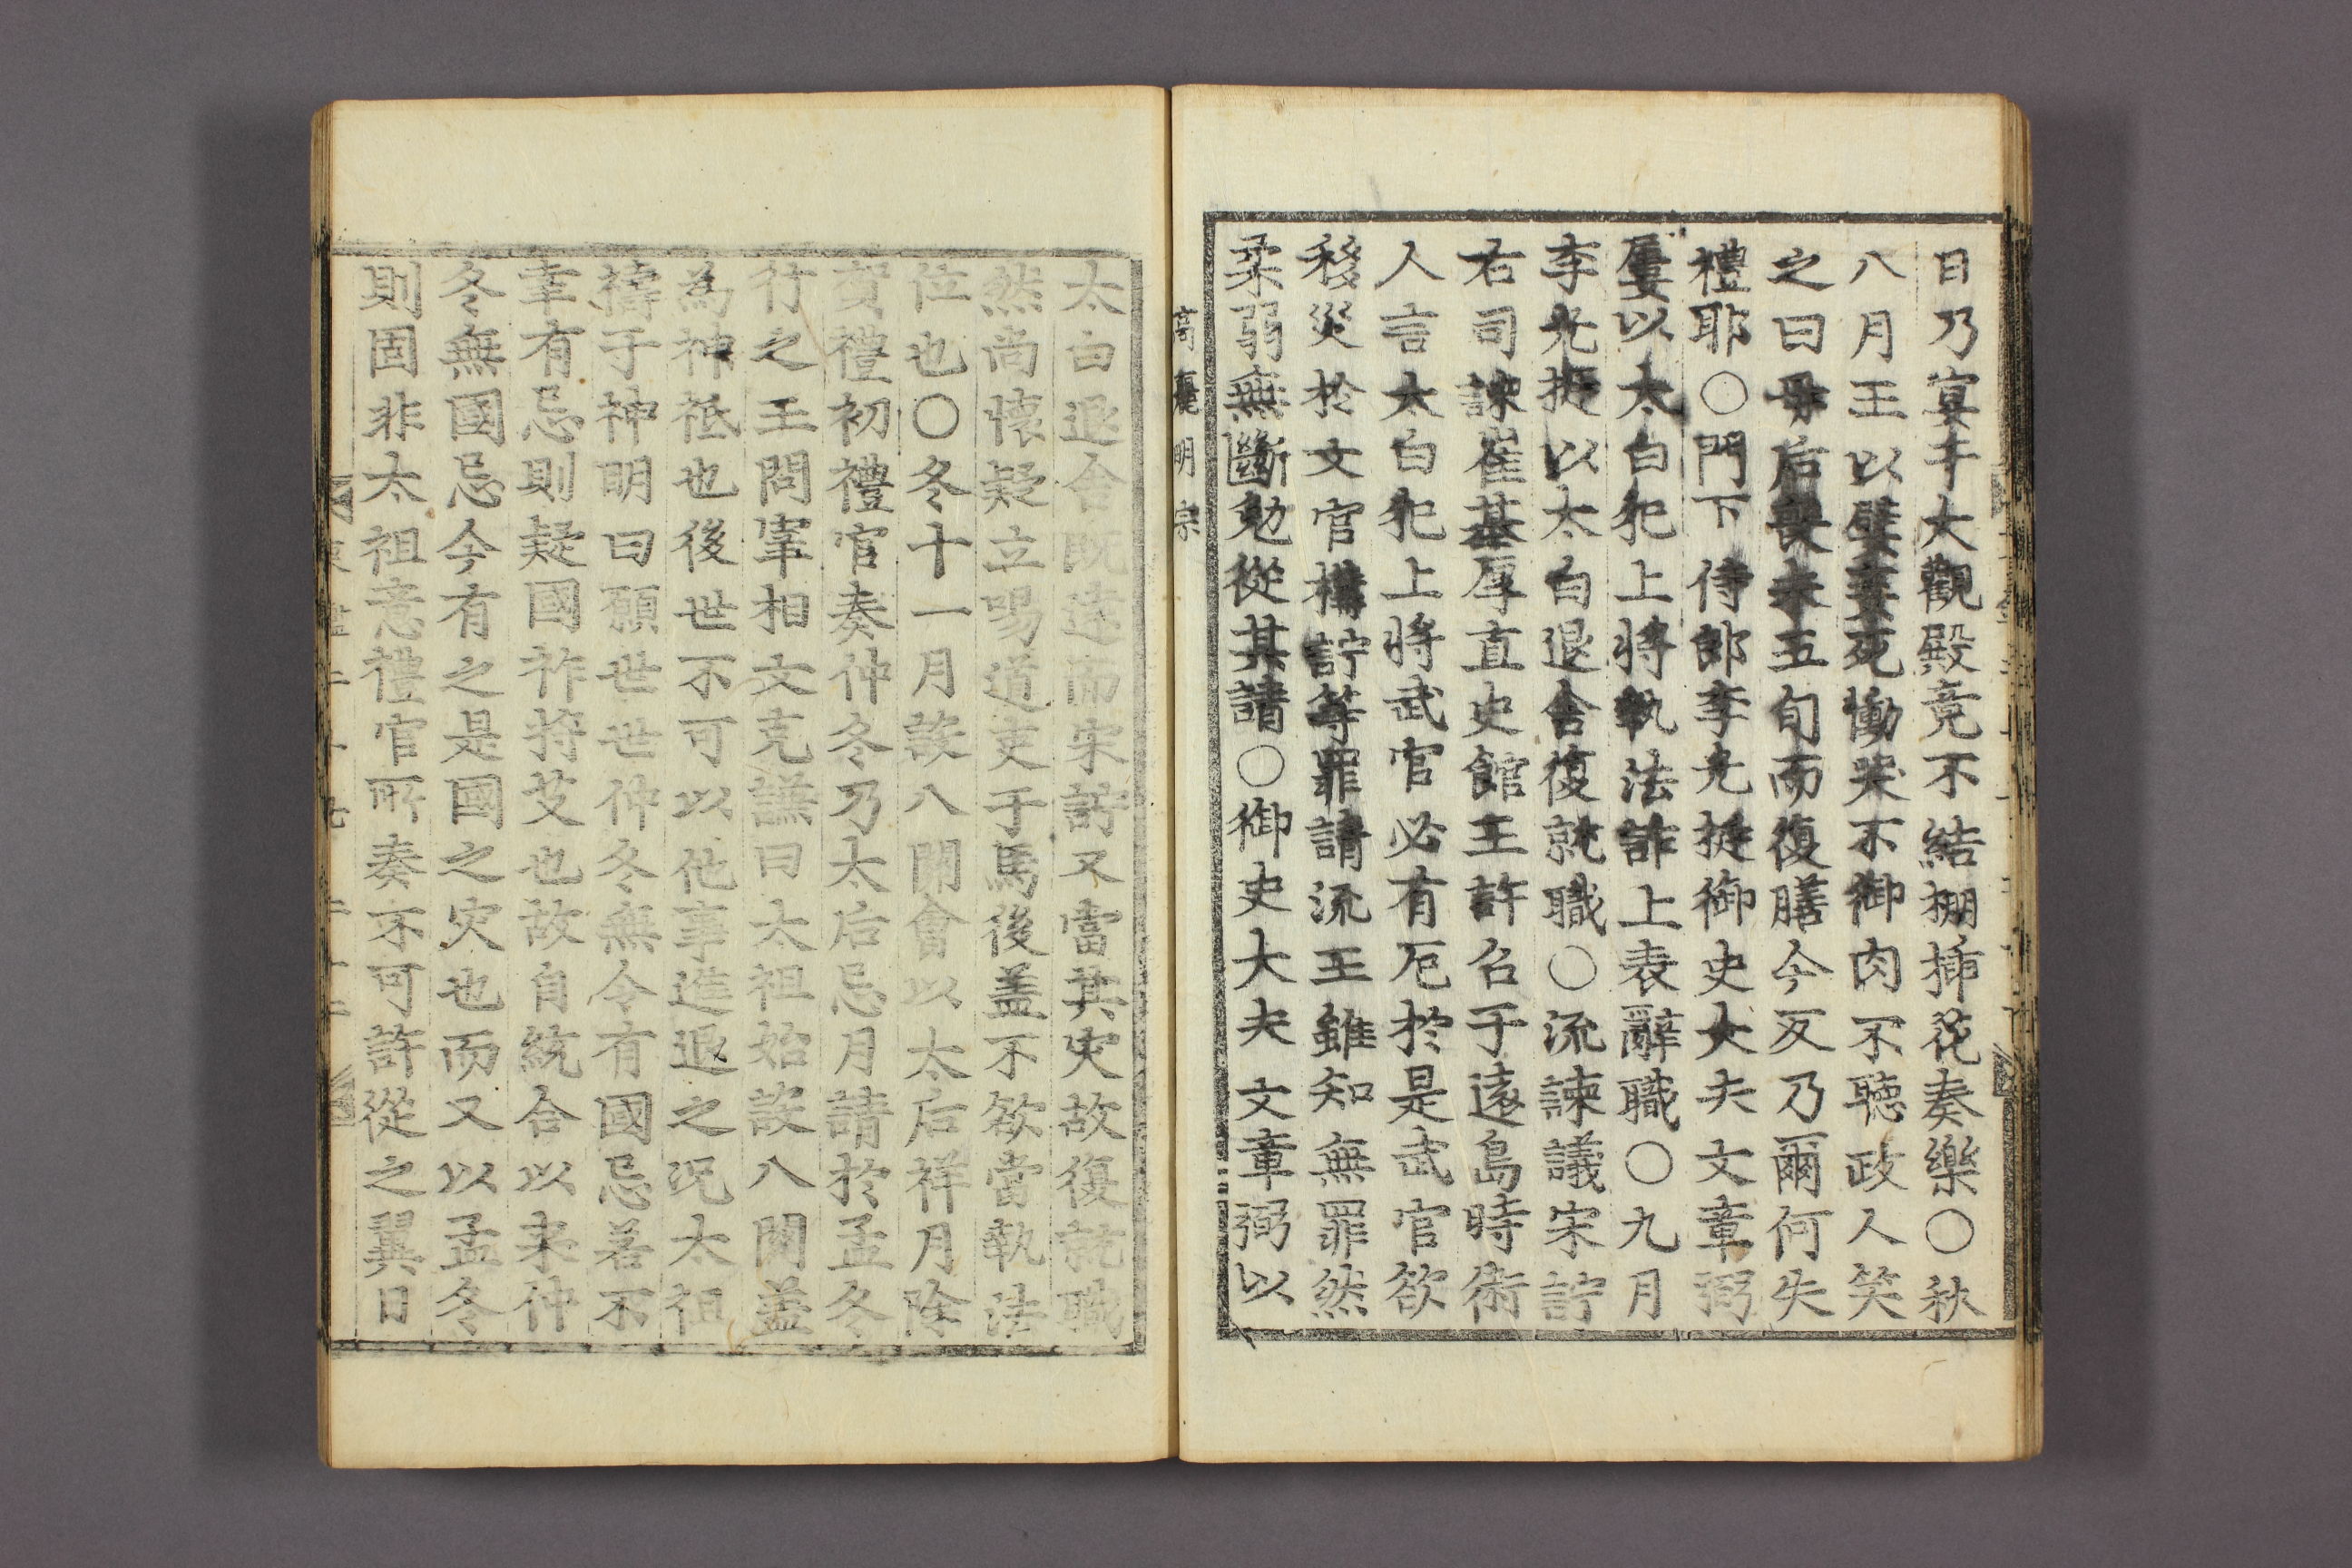 日乃宴于大觀殿竟不結棚揷花奏樂○秋
八月王以嬖妾死慟哭不御肉不聽政人笑
之曰母后喪未五旬而復膳今反乃爾何失
禮耶○門下侍郎李光挺御史大夫文章弼
屢以太白犯上將執法詐上表辭職○九月
李光挺以太白退舍復就職○流諫議宋訂
右司諫崔基厚直史館王許召于遠島時術
人言太白犯上將武官必有厄於是武官欲
移災於文官構訂等罪請流王雖知無罪然
柔弱無斷勉從其請○御史大夫文章弼以
高麗明宗
太白退舍旣遠而宋訂又當其灾故復就職
然尚懷疑立喝道吏于馬後盖不欲當執法
位也○冬十一月設八關會以太后祥月除
賀禮初禮官奏仲冬乃太后忌月請於孟冬
行之王問宰相文克謙曰太祖始設八關盖
為神祗也後世不可以他事進退之况太祖
禱于神明曰願世世仲冬無令有國忌若不
幸有忌則疑國祚將艾也故自統合以來仲
冬無國忌今有之是國之灾也而又以孟冬
則固非太祖意禮官所奏不可許從之翼日